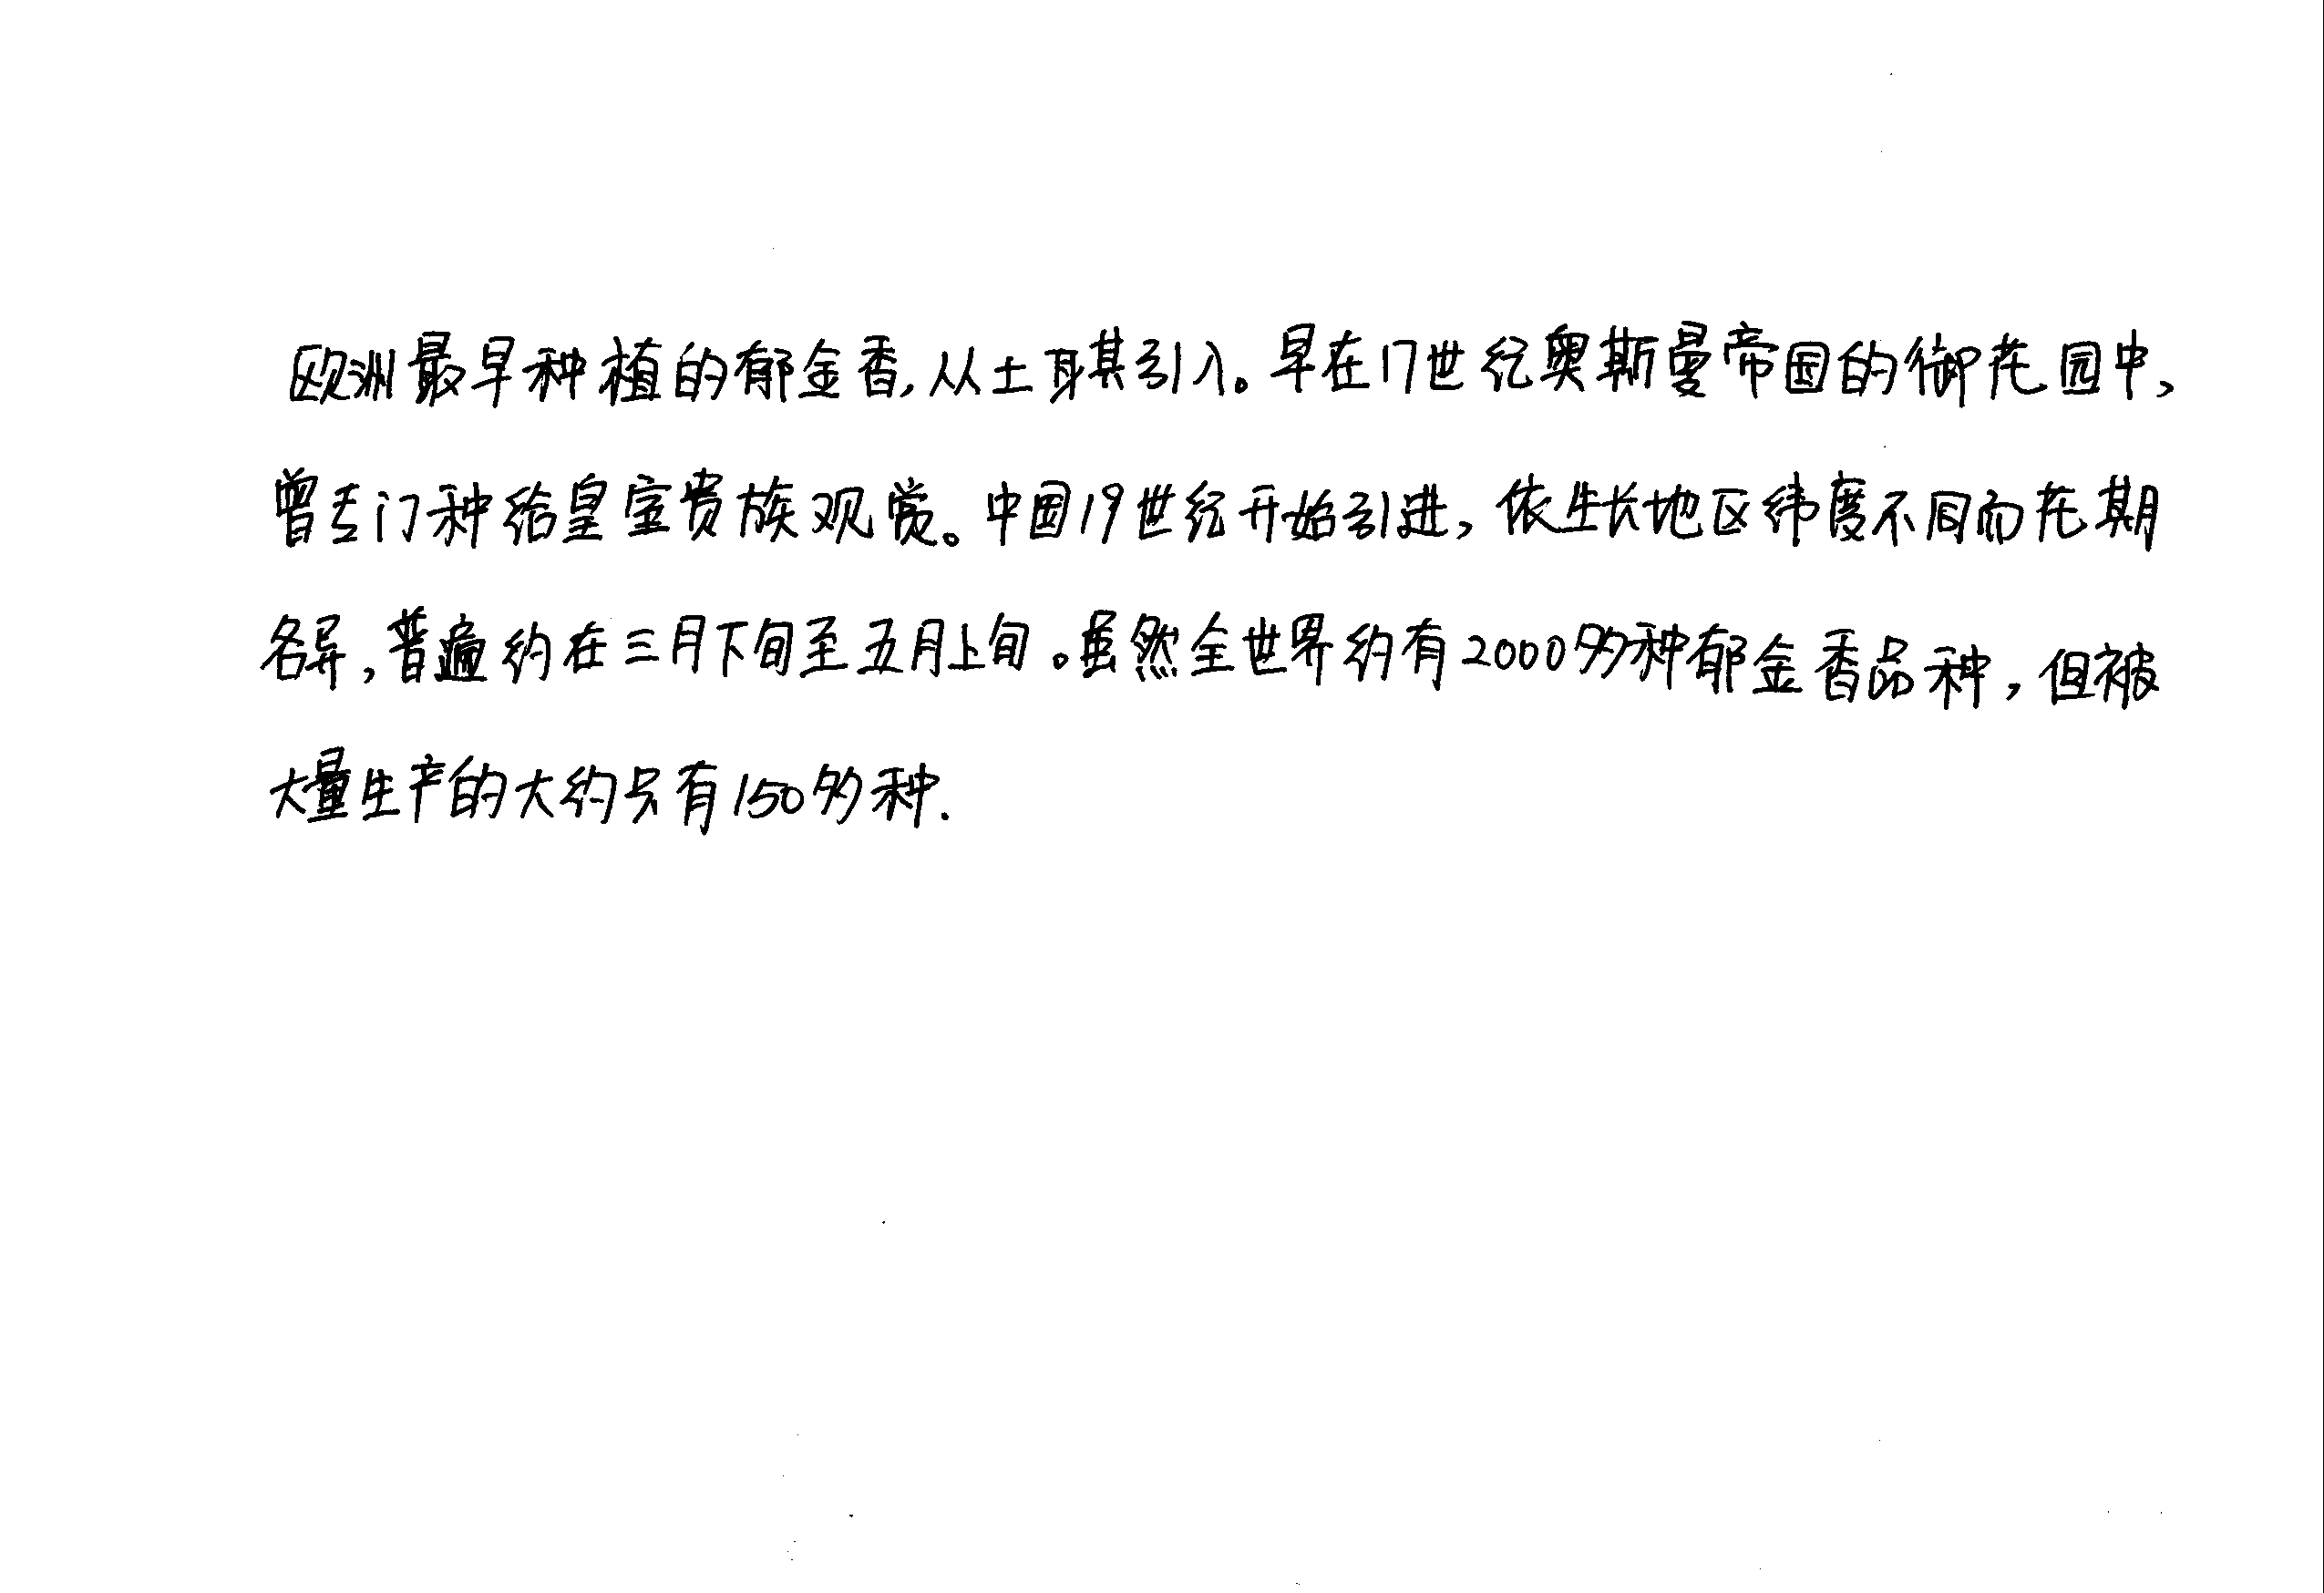 欧洲最早种植的郁金香,从土耳其引入。早在17世纪奥斯曼帝国的御花园中,
曾专门种给皇室贵族观赏。中国19世纪开始引进,依生长地区纬度不同而花期
各异,普遍约在三月下旬至五月上旬。虽然全世界约有2000多种郁金香品种,但被
大量生产的大约只有150多种.